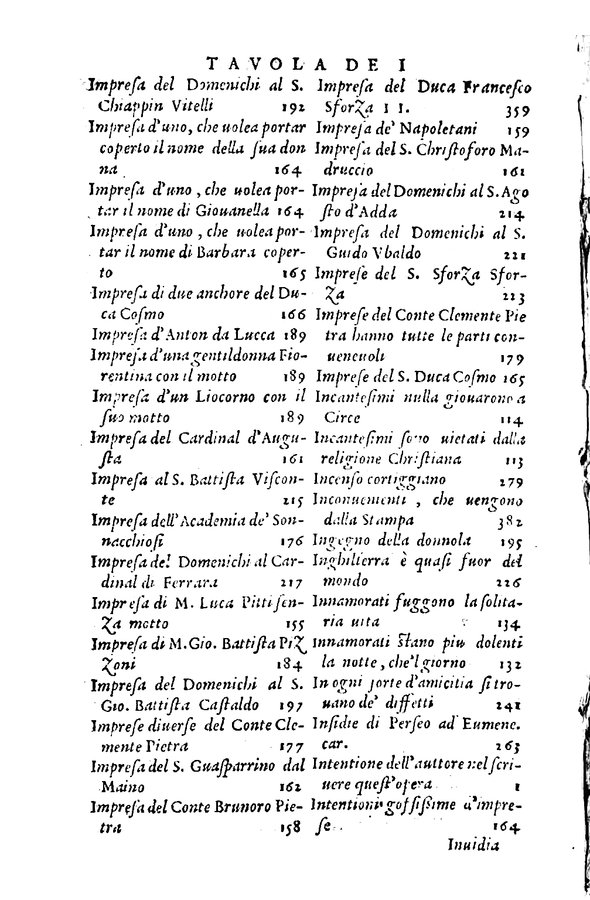 TAVOLA DE I
Impreſa del Domenichi al S.
Chiappin Vitelli 192
Impreſa d'uno, che uolea portar
coperto il nome della ſua don
na 164
Impreſa d'uno, che uolea por-
tar il nome di Giouanella 164
Impreſa d'uno, che uolea por-
tar il nome di Barbara coper-
to 165
Impreſa di due anchore del Du-
ca Coſmo 166
Impreſa d'Anton da Lucca 189
Impreſa d'una gentildonna Fio-
rentina con il motto 189
Impreſa d'un Liocorno con il
ſuo motto 189
Impreſa del Cardinal d'Augu-
ſta 161
Impreſa al S. Battiſta Viſcon-
te 215
Impreſa dell'Academia de' Son-
nacchioſi 176
Impreſa del Domenichi al Car-
dinal di Ferrara 217
Impreſa di M. Luca Pitti ſen-
za motto 155
Impreſa di M. Gio. Battiſta Piz
zoni 184
Impreſa del Domenichi al S.
Gio. Battiſta Caſtaldo 197
Impreſe diuerſe del Conte Cle-
mente Pietra 177
Impreſa del S. Guaſparrino dal
Maino 162
Impreſa del Conte Brunoro Pie-
tra 158
Impreſa del Duca Franceſco
Sforza II. 359
Impreſa de' Napoletani 159
Impreſa del S. Chriſtoforo Ma-
druccio 161
Impreſa del Domenichi al S. Ago
ſto d'Adda 214
Impreſa del Domenichi al S.
Guido Vbaldo 221
Impreſe del S. Sforza Sfor-
za 223
Impreſe del Conte Clemente Pie
tra hanno tutte le parti con-
ueneuoli 179
Impreſe del S. Duca Coſmo 165
Incanteſimi nulla giouarono a
Circe 114
Incanteſimi ſono uietati dalla
religione Chriſtiana 113
Incenſo cortiggiano 279
Inconuenienti, che uengono
dalla Stampa 382
Ingegno della donnola 195
Inghilterra è quaſi fuor del
mondo 226
Innamorati fuggono la ſolita-
ria uita 134
Innamorati ſtano piu dolenti
la notte, che'l giorno 132
In ogni ſorte d'amicitia ſi tro-
uano de' diffetti 241
Inſidie di Perſeo ad Eumene.
car. 263
Intentione dell'auttore nel ſcri-
uere queſt'opera 1
Intentioni goffiſſime d'impre-
ſe. 164
Inuidia